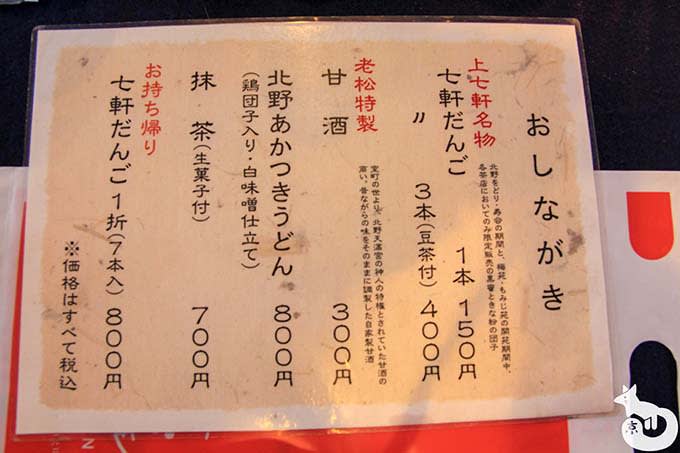 おしながき
上七軒名物
七軒だんご 1本 150円
〃 3本(豆茶付) 400円
北野をどり・寿会の期間と、梅苑・もみじ苑の開苑期間中、
各茶店においてのみ限定販売の黒蜜ときな粉の団子
老松特製
甘酒 300円
室町の世より、北野天満宮の神人の特権とされていた甘酒の
商い。昔ながらの味をそのままに調製した自家製甘酒
北野あかつきうどん 800円
(鶏団子入り・白味噌仕立て)
抹茶(生菓子付) 700円
お持ち帰り
七軒だんご 1折(7本入) 800円
※価格はすべて税込
京